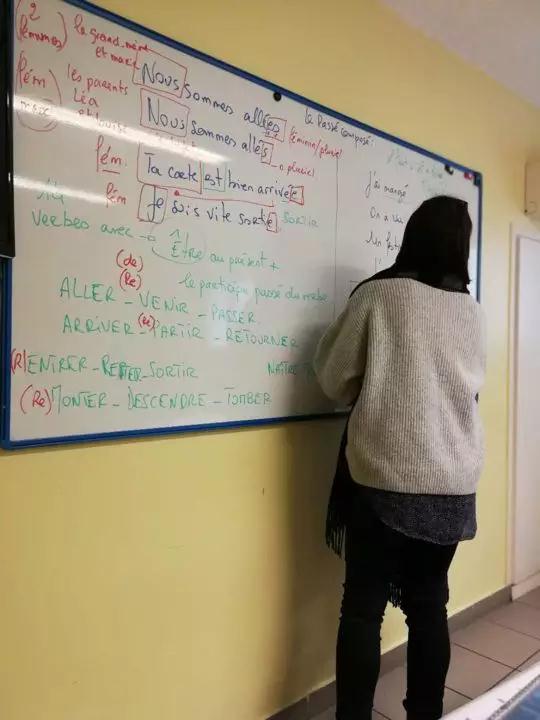 (2 femmes) la grand-mère et marie
Nous sommes allées
le passé composé :
féminin/pluriel
(fém) les parents
Léa
Nous sommes allés
pluriel
fém. Ta carte est bien arrivée
fém Je suis vite sortie SORTIR
14 verbes avec 1 Être au présent +
le participe passé du verbe
(de) (Re)
ALLER - VENIR - PASSER.
ARRIVER - (Re) PARTIR - RETOURNER
(R)ENTRER - RESTER - SORTIR
(Re) MONTER - DESCENDRE - TOMBER
J'ai mangé
On a
Un